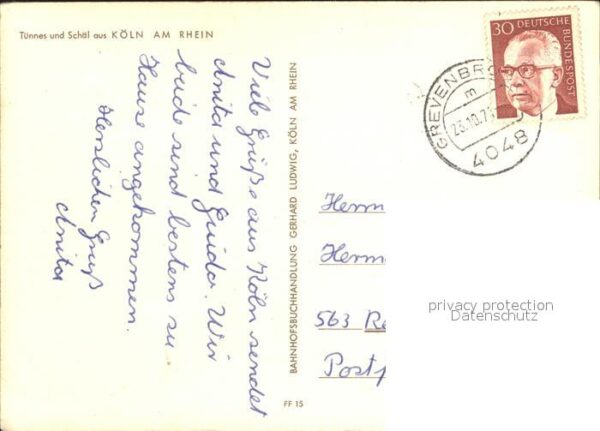 Tünnes und Schäl aus KÖLN AM RHEIN
Viele Grüße aus Köln sendet
Anita und Guido. Wir
beide sind bestens zu
Hause angekommen.
Herzlichen Gruß
Anita
BAHNHOFSBUCHHANDLUNG GERHARD LUDWIG, KÖLN AM RHEIN
FF 15
30 DEUTSCHE
BUNDESPOST
GREVENBR
m
4048
Herm
Herm
563 Re
Postf
privacy protection
Datenschutz